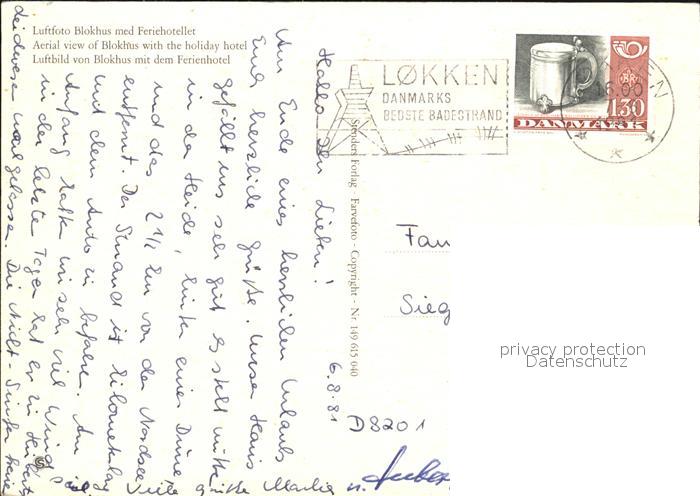 Luftfoto Blokhus med Feriehotellet
Aerial view of Blokhus with the holiday hotel
Luftbild von Blokhus mit dem Ferienhotel
LØKKEN
DANMARKS
BEDSTE BADESTRAND
LØKKEN
16.00
130
DANMARK
Stenders Forlag - Farvefoto - Copyright - Nr. 149 615 040
6.8.81
Hallo Ihr Lieben!
Am Ende eines herrlichen Urlaubs
Euch herzliche Grüße. Unser Haus
gefällt uns sehr gut. Es steht mitten
in der Heide, hinter einer Düne
und das 2 1/2 km von der Nordsee
entfernt. Der Strand ist kilometerlang
mit dem Auto zu befahren. Am
Anfang hatten wir sehr viel Wind,
in den letzten Tagen hat er zu
leider nachgelassen. Die
Viele Grüße
u.
Fam
Sieg
D8201
privacy protection
Datenschutz